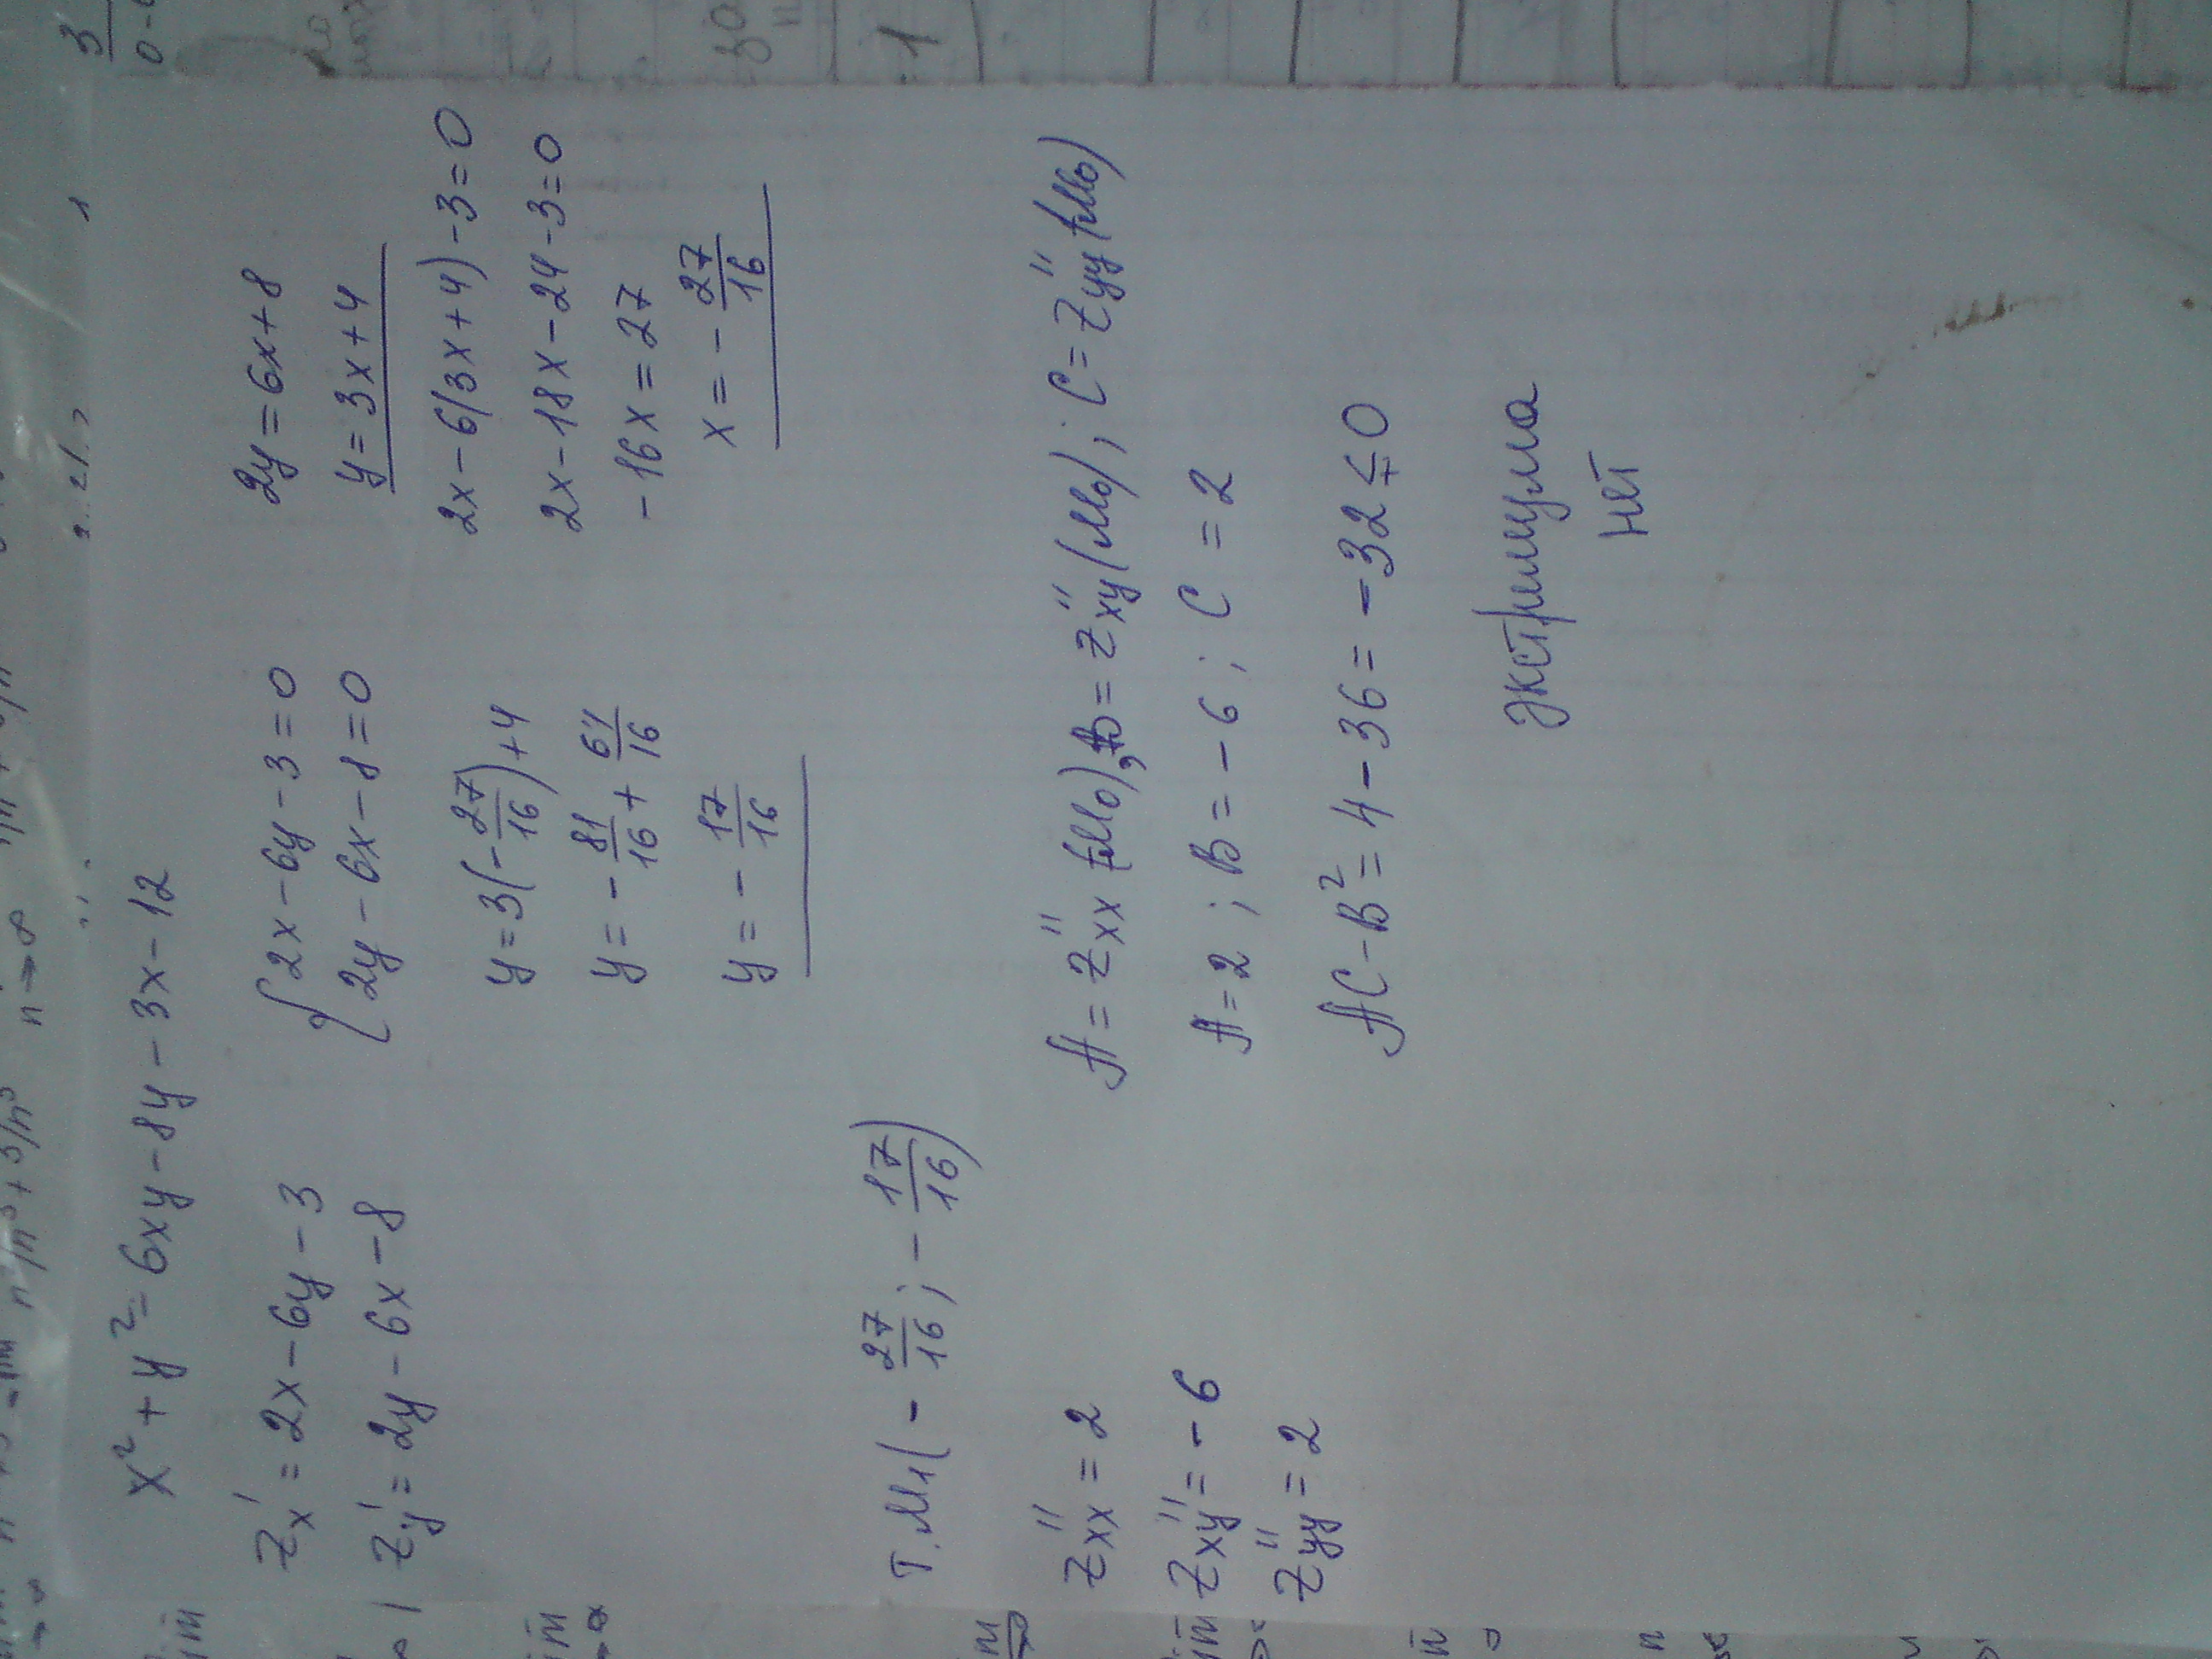 x² + y² - 6xy - 8y - 3x - 12
z'x = 2x - 6y - 3
z'y = 2y - 6x - 8
{ 2x - 6y - 3 = 0
2y - 6x - 8 = 0
2y = 6x + 8
y = 3x + 4
2x - 6(3x + 4) - 3 = 0
2x - 18x - 24 - 3 = 0
-16x = 27
x = - 27/16
y = 3(- 27/16) + 4
y = - 81/16 + 64/16
y = - 17/16
т. M₁(- 27/16; - 17/16)
z''xx = 2
z''xy = - 6
z''yy = 2
A = z''xx (M₀), B = z''xy (M₀); C = z''yy (M₀)
A = 2; B = - 6; C = 2
AC - B² = 4 - 36 = - 32 ≤ 0
экстримума
нет
n→∞